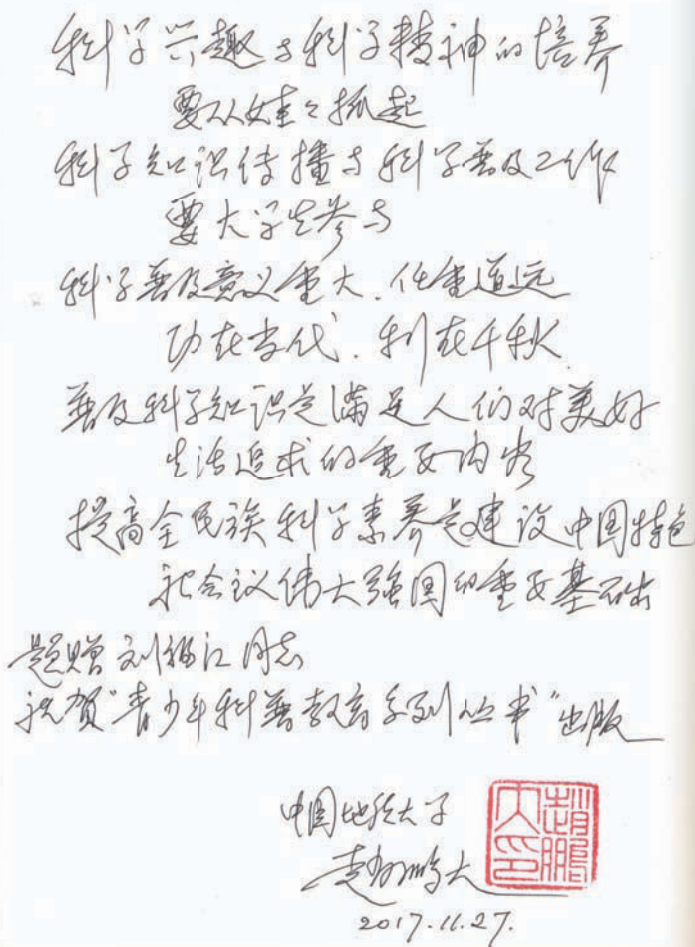 科学兴趣与科学精神的培养
要从娃娃抓起
科学知识传播与科学普及工作
要大学生参与
科学普及意义重大、任重道远
功在当代、利在千秋
普及科学知识是满足人们对美好
生活追求的重要内容
提高全民族科学素养是建设中国特色
社会议伟大强国的重要基础
题赠刘福江同志
祝贺“青少年科普教育系列丛书”出版
中国地质大学
赵鹏大
2017.11.27.
赵鹏大印